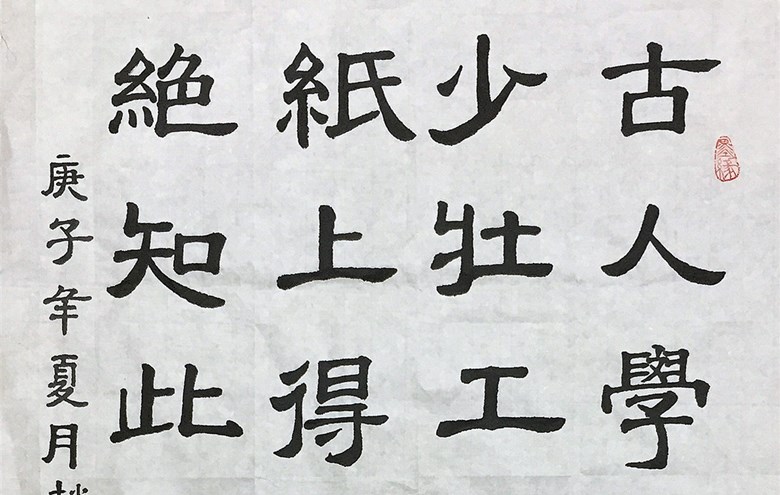 古人學
少壯工
紙上得
絕知此
庚子年夏月